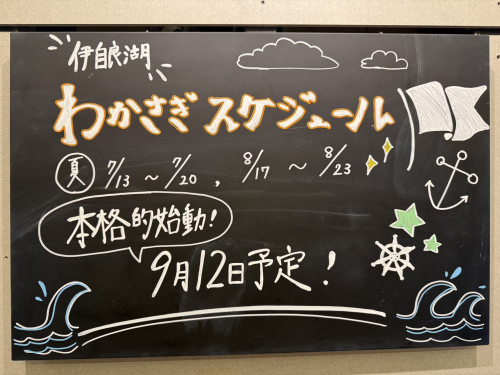 伊自良湖
わかさぎ スケジュール
夏 7/13 ～ 7/20 , 8/17 ～ 8/23
本格的始動!
9月12日予定!